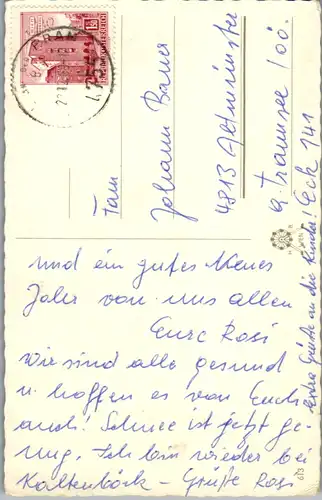 Fam
Johann Bauer
4813 Altmünster
a. Traunsee 100.
Eck 141
und ein gutes Neues
Jahr von uns allen
Eure Rosi
Wir sind alle gesund
u. hoffen es von Euch
auch! Schnee ist jetzt ge-
nug. Ich bin wieder bei
Kaltenböck - Grüße Rosi
Extra Grüße an die Kinder!
613